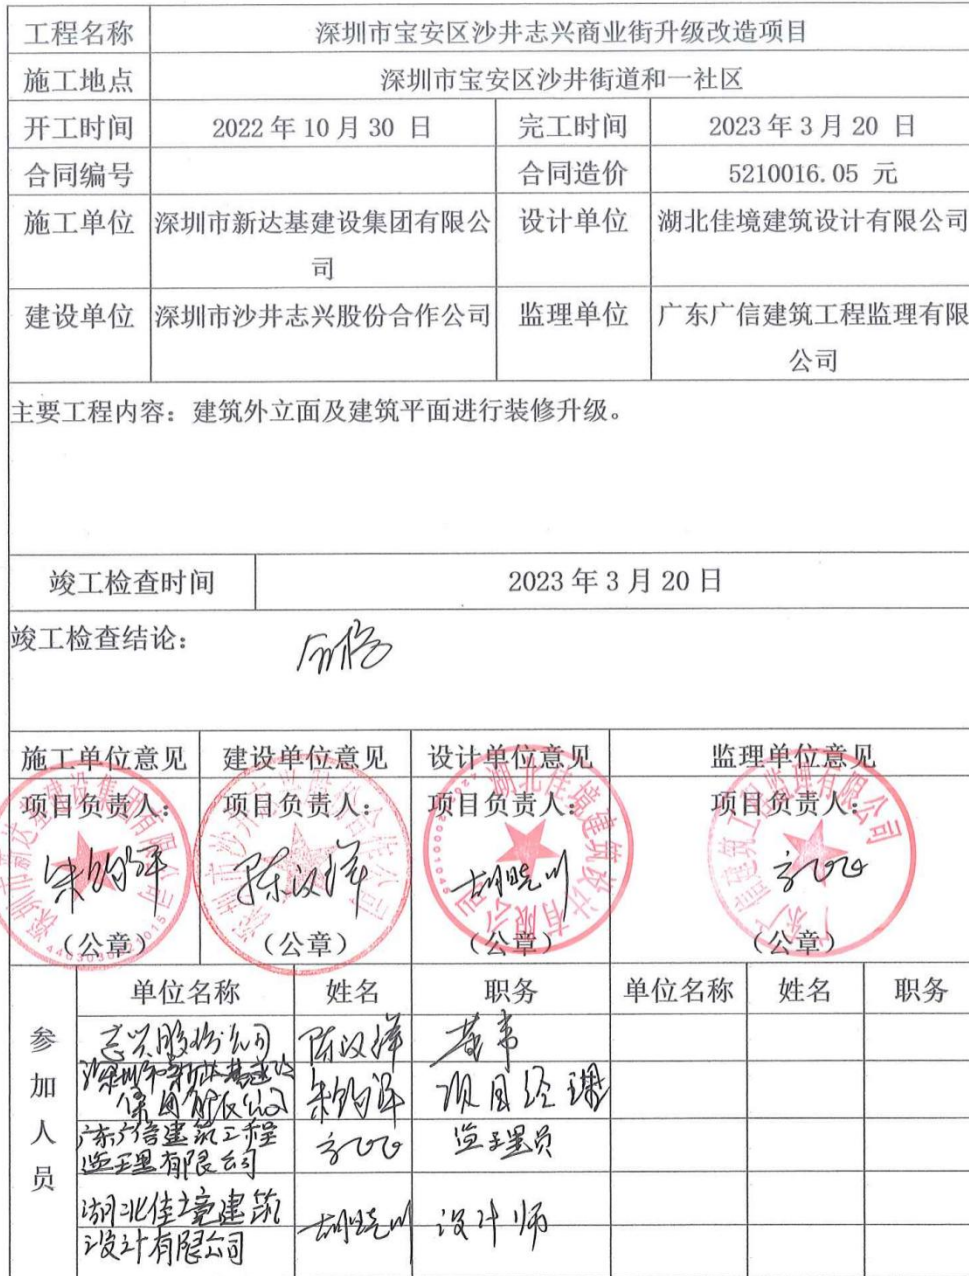 工程名称 深圳市宝安区沙井志兴商业街升级改造项目
施工地点 深圳市宝安区沙井街道和一社区
开工时间 2022年10月30日 完工时间 2023年3月20日
合同编号 合同造价 5210016.05 元
施工单位 深圳市新达基建设集团有限公 设计单位 湖北佳境建筑设计有限公司
司
建设单位 深圳市沙井志兴股份合作公司 监理单位 广东广信建筑工程监理有限
公司
主要工程内容：建筑外立面及建筑平面进行装修升级。
竣工检查时间 2023年3月20日
竣工检查结论： 合格
施工单位意见 建设单位意见 设计单位意见 监理单位意见
项目负责人： 项目负责人： 项目负责人： 项目负责人：
陈汉 胡晓川
（公章） （公章） （公章） （公章）
深圳市新达基建设集团有限公司
湖北佳境建筑设计有限公司
广东广信建筑工程监理有限公司
参加人员 单位名称 姓名 职务 单位名称 姓名 职务
志兴股份公司 陈汉 董事
深圳市新达基建设
集团有限公司 项目经理
广东广信建筑工程
监理有限公司 监理员
湖北佳境建筑
设计有限公司 胡晓川 设计师